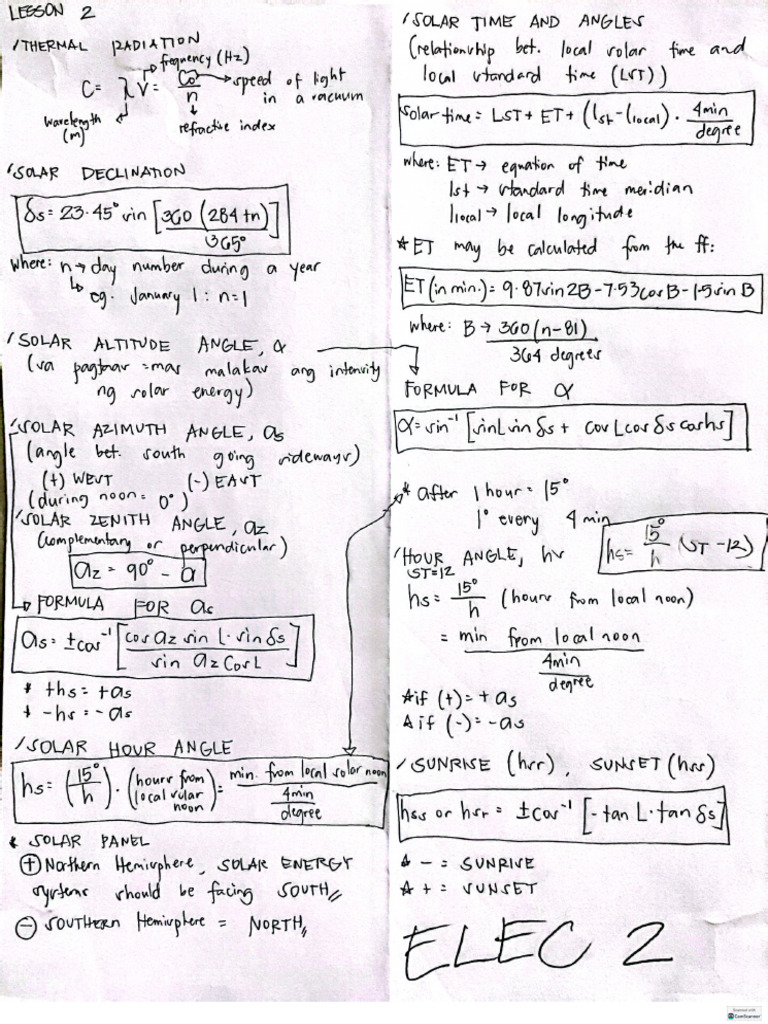 LESSON 2
/THERMAL RADIATION
frequency (Hz)
C = λν = Co/n → speed of light in a vacuum
wavelength (m)
refractive index
/SOLAR DECLINATION
δs = 23.45° sin [360 (284+n)/365°]
where: n → day number during a year
↳ eg. January 1 : n=1
/SOLAR ALTITUDE ANGLE, α
(sa pagtaas = mas malakas ang intensity
ng solar energy)
/SOLAR AZIMUTH ANGLE, as
(angle bet. south going sideways)
(+) WEST (-) EAST
(during noon = 0°)
/SOLAR ZENITH ANGLE, az
(complementary or perpendicular)
az = 90° - α
→ FORMULA FOR as
as = ±cos⁻¹ [cos az sin L · sin δs / sin az Cos L]
* +hs = +as
* -hs = -as
/SOLAR HOUR ANGLE
hs = (15°/h) · (hours from local solar noon) = min. from local solar noon / (4min/degree)
* SOLAR PANEL
⊕ Northern Hemisphere, SOLAR ENERGY
systems should be facing SOUTH //
⊖ SOUTHERN Hemisphere = NORTH //
/SOLAR TIME AND ANGLES
(relationship bet. local solar time and
local standard time (LST))
solar time = LST + ET + (lst - llocal) · 4min/degree
where: ET → equation of time
lst → standard time meridian
llocal → local longitude
* ET may be calculated from the ff:
ET (in min.) = 9.87 sin 2B - 7.53 cos B - 1.5 sin B
where: B → 360(n-81)/364 degrees
FORMULA FOR α
α = sin⁻¹ [sin L sin δs + cos L cos δs cos hs]
* after 1 hour = 15°
1° every 4 min
hs = 15°/h (ST - 12)
/HOUR ANGLE, hs
ST=12
hs = 15°/h (hours from local noon)
= min from local noon / (4min/degree)
* if (+) = +as
* if (-) = -as
/SUNRISE (hsr), SUNSET (hss)
hss or hsr = ±cos⁻¹ [-tan L · tan δs]
* - = SUNRISE
* + = SUNSET
ELEC 2
Scanned with
CamScanner